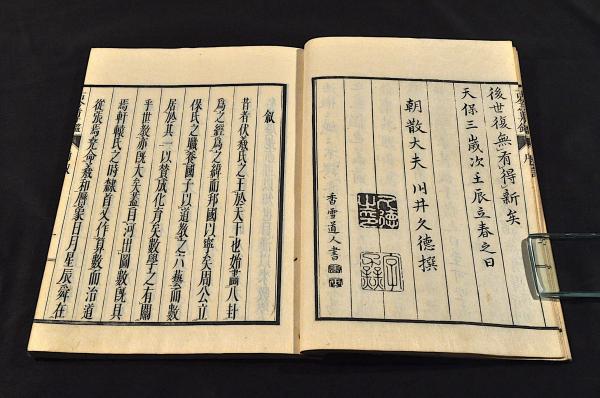 後世復無有得新矣
天保三歳次壬辰立春之日
朝散大夫 川井久徳撰
香雪道人書
叙
昔者伏羲氏之王於天下也始畫八卦
為之經為之緯而邦國以寧矣周公立
保氏之職養國子以道教之六藝而數
居於其一以賛成化育矣數學之有關
乎世教亦既大矣盖自河出圖數既具
焉軒轅氏之時隷首又作算數而治道
從張焉堯命羲和曆象日月星辰舜在